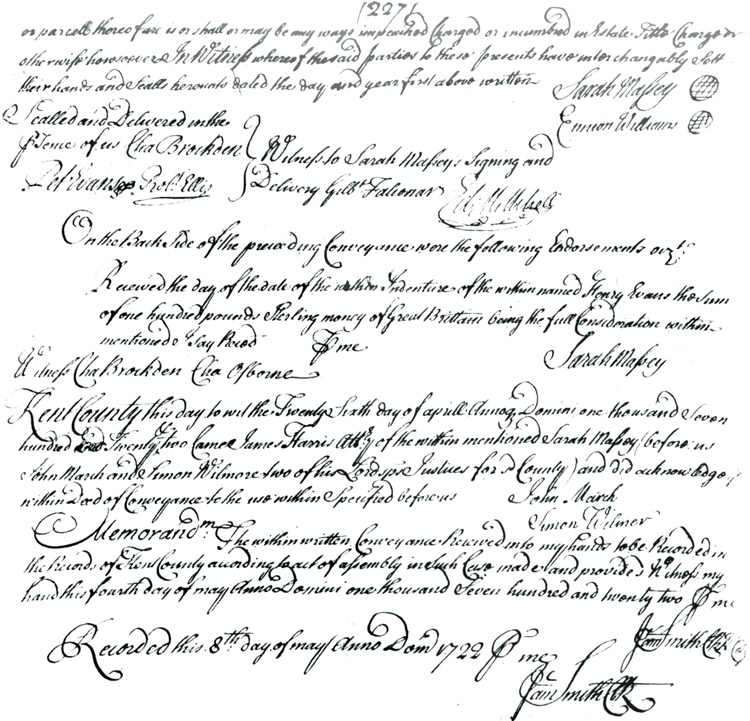 (227)
or parcell thereof are is or shall or may be any ways impeached Charged or incumbred in Estate Title Charge or
otherwise howsoever In Witness whereof the said parties to these presents have interchangably Sett
their hands and Sealls hereunto dated the day and year first above written Sarah Massey
Sealled and Delivered in the Ennion Williams
Psence of us Cha Brockden Witness to Sarah Massey's Signing and
Pet Evans Robt Ellis Delivery Gilbt Falionar
On the Back Side of the preceeding Conveyance were the following Endorsements vizt:
Received the day of the date of the within Indenture of the within named Henry Evans the sum
of one hundred pounds Sterling money of Great Brittain being the full Consideration within
mentioned I Say Recd P me
Sarah Massey
Witness Cha Brockden Cha Osborne
Kent County this day to wit the Twenty Sixth day of aprill Annoq Domini one thousand Seven
hundred Twenty two Came James Harris Atty of the within mentioned Sarah Massey (before us
John March and Simon Wilmore two of his Lordsps Justices for sd County) and did acknowledge
within Deed of Conveyance to the use within Specified before us John March
Simon Wilmer
Memorandm The within written Conveyance Received into my hands to be Recorded in
the Records of Kent County according to act of assembly in Such Case made and provided Witness my
hand this fourth day of may Anno Domini one thousand Seven hundred and twenty two P me
Jam Smith Clk
Recorded this 8th day of may Anno Dom 1722 P me
Jam Smith Clk